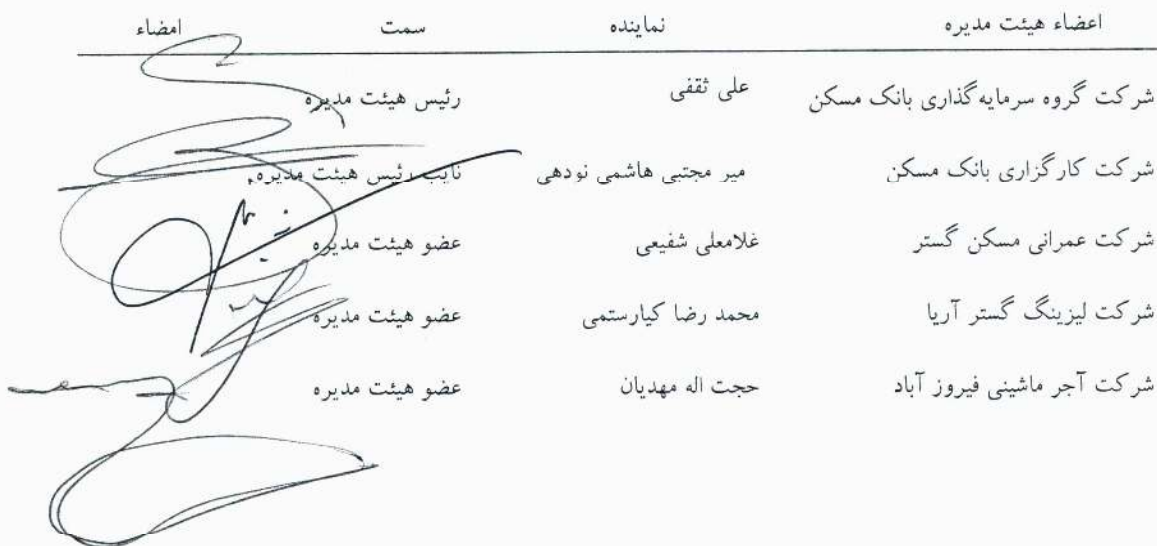 اعضاء هیئت مدیره نماینده سمت امضاء
شرکت گروه سرمایه‌گذاری بانک مسکن علی ثقفی رئیس هیئت مدیره
شرکت کارگزاری بانک مسکن میر مجتبی هاشمی نودهی نایب رئیس هیئت مدیره
شرکت عمرانی مسکن گستر غلامعلی شفیعی عضو هیئت مدیره
شرکت لیزینگ گستر آریا محمد رضا کیارستمی عضو هیئت مدیره
شرکت آجر ماشینی فیروز آباد حجت اله مهدیان عضو هیئت مدیره